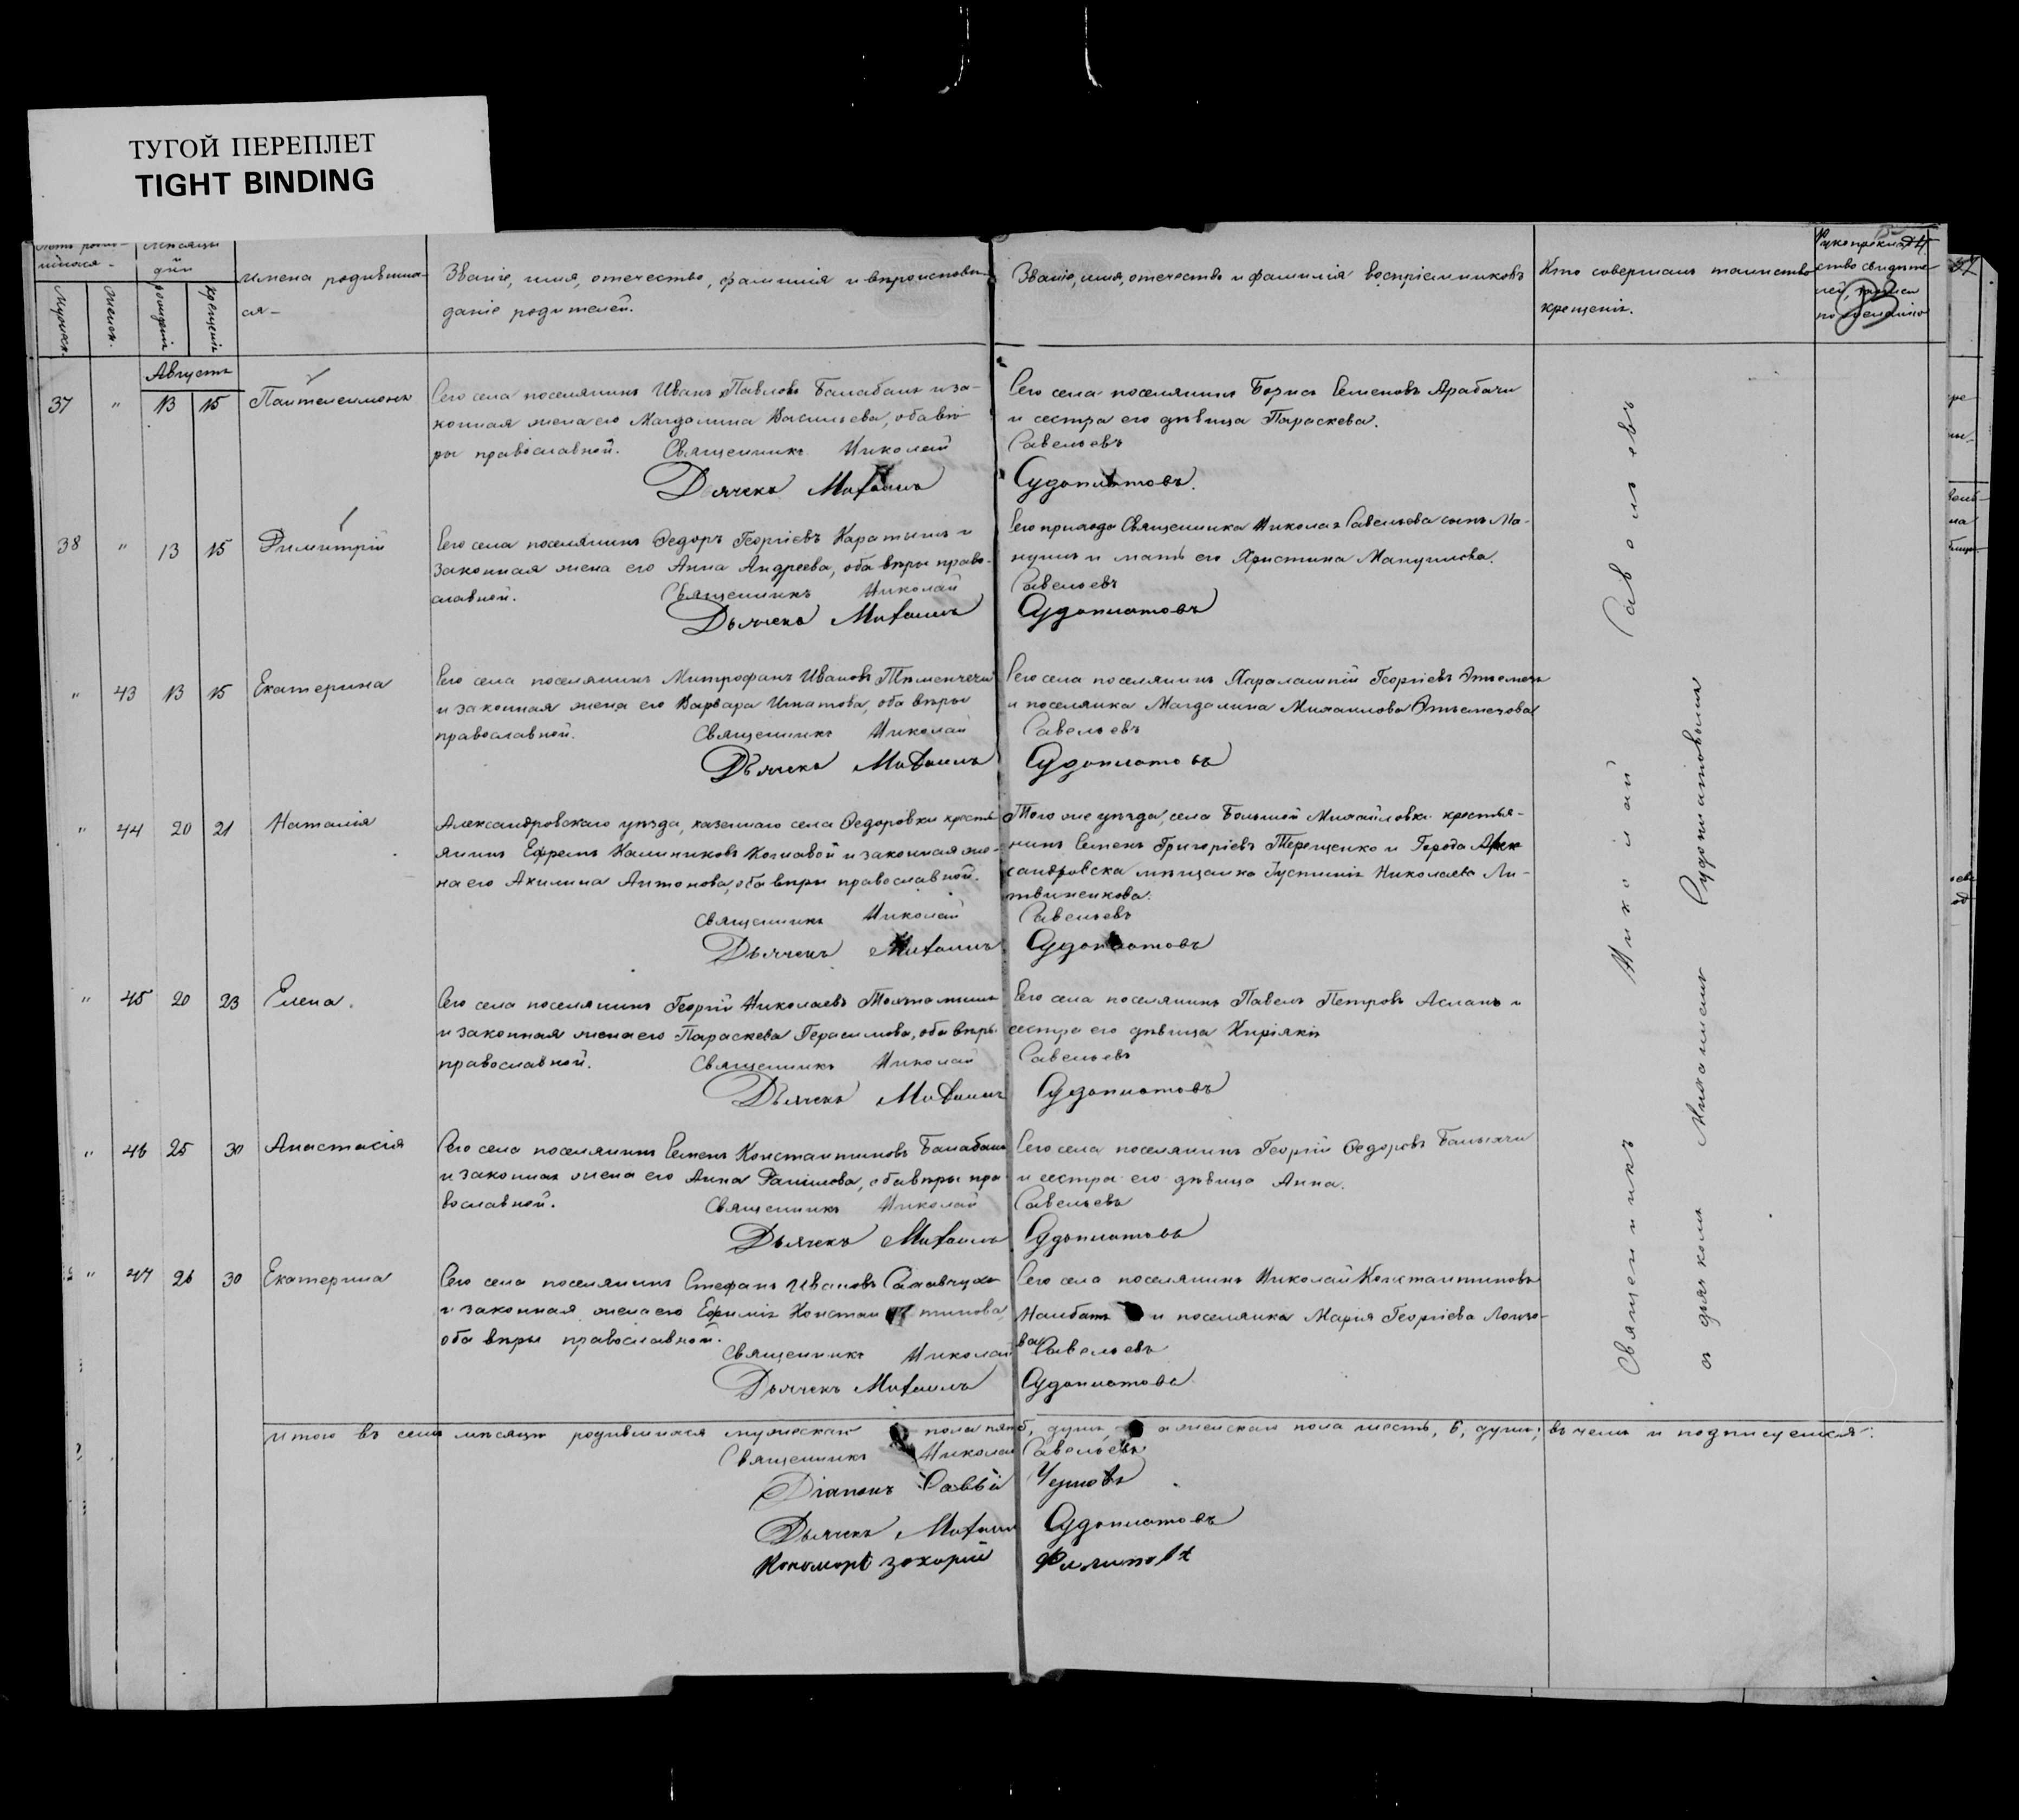 ТУГОЙ ПЕРЕПЛЕТ
TIGHT BINDING
имена родивших-
ся-
Званіе, имя, отечество, фамилія и вѣроисповѣ-
даніе родителей.
Званіе, имя, отечество и фамилія воспріемниковъ
Кто совершалъ таинство
крещенія.
Рукоприклад
ство свидѣте
лей, записи
по желанію
Мужеск.
Женск.
рожденія
крещенія
Августъ
37 " 13 15 Пантелеимонъ
Сего села поселянинъ Иванъ Павловъ Балабанъ и за-
конная жена его Магдалина Васильева, оба вѣ-
ры православной. Священникъ Николай Савельевъ
Дьячекъ Михаилъ Судоплатовъ.
Сего села поселянинъ Борисъ Семеновъ Арабачи
и сестра его дѣвица Параскева.
38 " 13 15 Димитрій
Сего села поселянинъ Федоръ Георгіевъ и
законная жена его Анна Андреева, оба вѣры право-
славной. Священникъ Николай Савельевъ
Дьячекъ Михаилъ Судоплатовъ
Сего прихода Священника Николая Савельева сынъ Ма-
нуилъ и мать его Христина Мануилова.
" 43 13 15 Екатерина
Сего села поселянинъ Митрофанъ Ивановъ
и законная жена его Варвара Игнатова, оба вѣры
православной. Священникъ Николай Савельевъ
Дьячекъ Михаилъ Судоплатовъ
Сего села поселянинъ Харалампій Георгіевъ
и поселянка Магдалина Михаилова
" 44 20 21 Наталія
Александровскаго уѣзда, казеннаго села Федоровки кресть
янинъ Ефремъ Калиниковъ и законная же-
на его Акилина Антонова, оба вѣры православной.
Священникъ Николай Савельевъ
Дьячекъ Михаилъ Судоплатовъ
Того же уѣзда, села Большой Михайловки крестья-
нинъ Семенъ Григоріевъ Терещенко и Города Алек
сандровска мѣщанка Іустинія Николаева Ли-
твиненкова.
" 45 20 23 Елена.
Сего села поселянинъ Георгій Николаевъ
и законная жена его Параскева Герасимова, оба вѣры
православной. Священникъ Николай Савельевъ
Дьячекъ Михаилъ Судоплатовъ
Сего села поселянинъ Павелъ Петровъ Асланъ и
сестра его дѣвица Киріякія
" 46 25 30 Анастасія
Сего села поселянинъ Семенъ Константиновъ Балабанъ
и законная жена его Анна Даніилова, оба вѣры пра
вославной. Священникъ Николай Савельевъ
Дьячекъ Михаилъ Судоплатовъ
Сего села поселянинъ Георгій Федоровъ
и сестра его дѣвица Анна.
" 47 26 30 Екатерина
Сего села поселянинъ Стефанъ Ивановъ
и законная жена его Ефимія Константинова,
оба вѣры православной.
Священникъ Николай Савельевъ
Дьячекъ Михаилъ Судоплатовъ
Сего села поселянинъ Николай Константиновъ
и поселянка Марія Георгіева
Священникъ Николай Савельевъ
съ дьячкомъ Михаиломъ Судоплатовымъ
Итого въ семъ мѣсяцѣ родившихся мужеска пола душъ, а женскаго пола шесть, 6, душъ; въ чемъ и подписуемся:
Священникъ Николай Савельевъ
Діаконъ Саввій
Дьячекъ Михаилъ Судоплатовъ